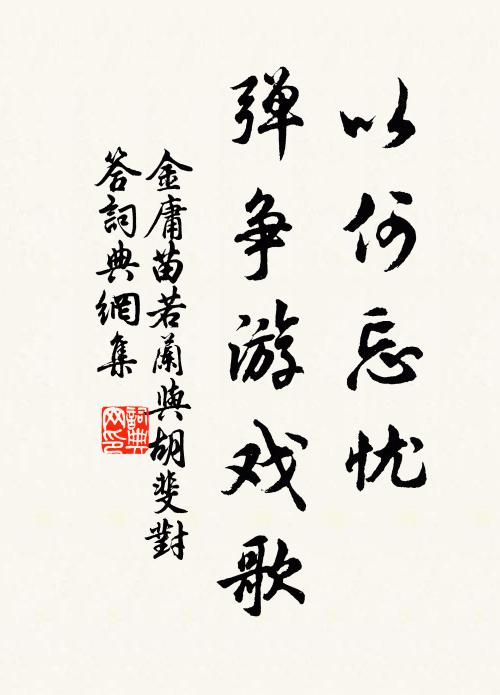 以何忘忧
弹争游戏歌
金庸苗若蘭與胡斐對
答詞典網集
詞典
网印